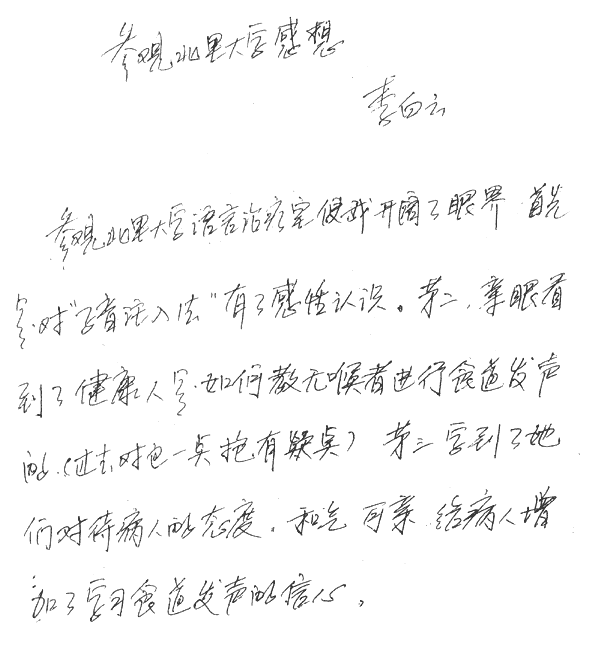 参观北里大学感想
李白云
参观北里大学语言治疗室使我开阔了眼界 首先
是对"子音注入法"有了感性认识。第二，亲眼看
到了健康人是如何教无喉者进行食道发声
的（过去对这一点抱有疑点）第三学到了她
们对待病人的态度。和气 可亲 给病人增
加了学习食道发声的信心。